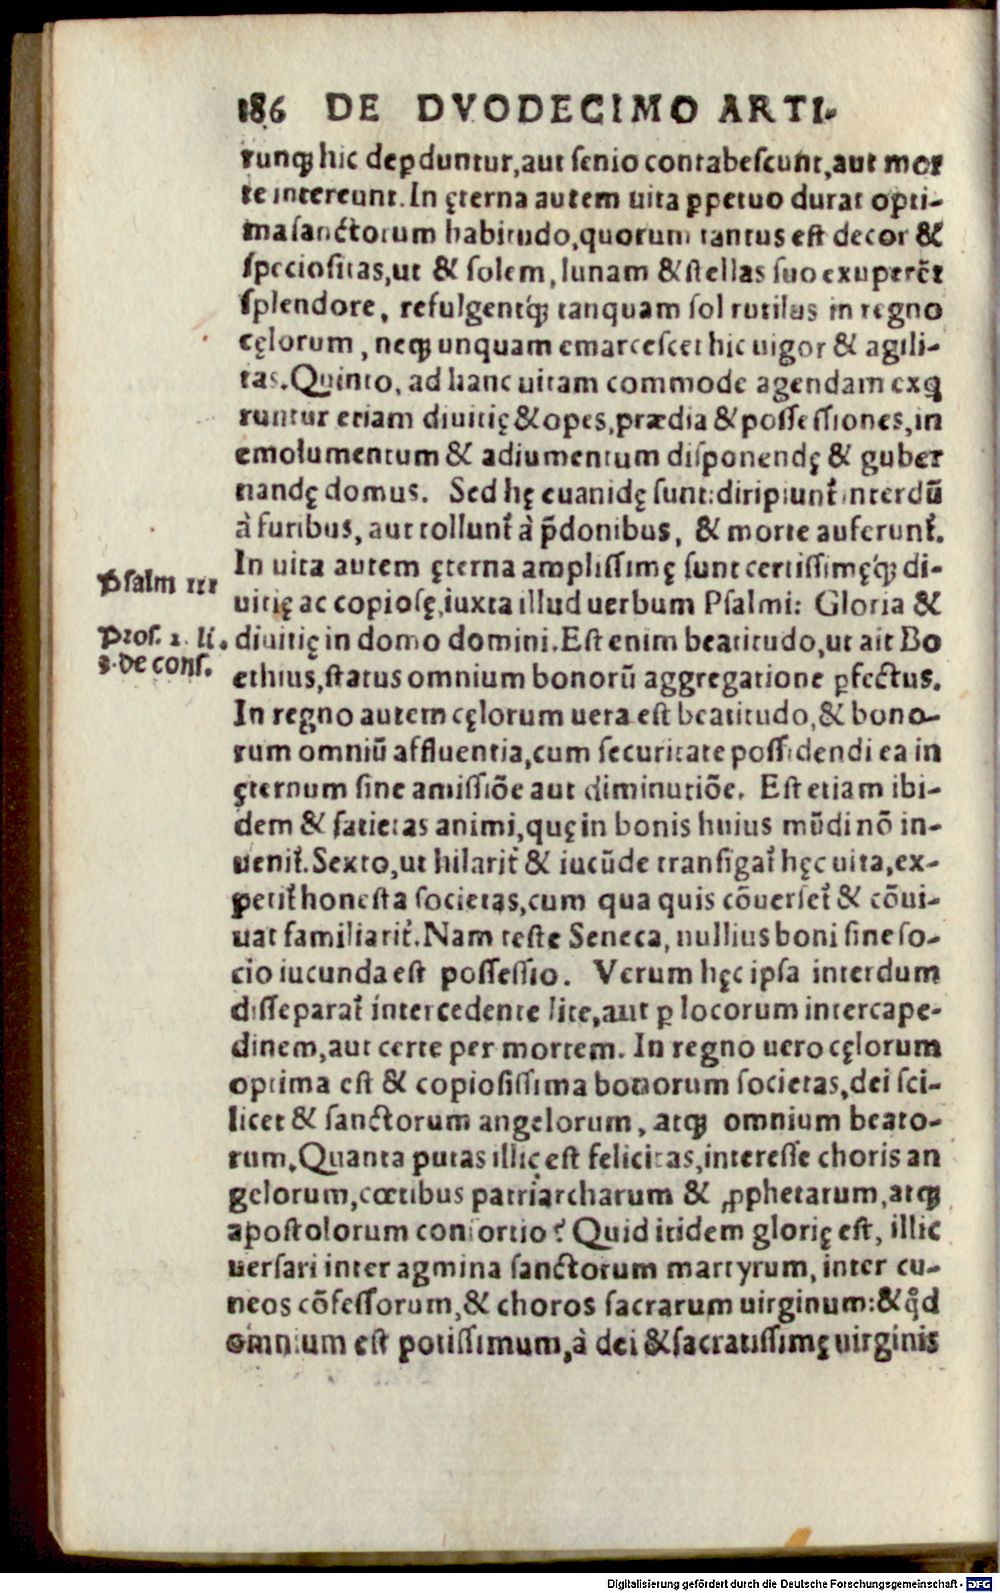 186 DE DVODECIMO ARTI-
runq́ꝫ hic deꝑduntur, aut senio contabescunt, aut mor
te intereunt. In ęterna autem uita ꝑpetuo durat opti-
ma sanctorum habitudo, quorum tantus est decor &
speciositas, ut & solem, lunam & stellas suo exuperēt
splendore, refulgentq́ꝫ tanquam sol rutilus in regno
cęlorum, neqꝫ unquam emarcescet hic uigor & agili-
tas. Quinto, ad hanc uitam commode agendam exq̃
runtur etiam diuitię & opes, prædia & possessiones, in
emolumentum & adiumentum disponendę & guber
nandę domus. Sed hę euanidę sunt: diripiunt̃ interdū
à furibus, aut tollunt̃ à p̄donibus, & morte auferunt̃.
In uita autem ęterna amplissimę sunt certissimęq́ꝫ di-
Psalm iii
uitię ac copiosę, iuxta illud uerbum Psalmi: Gloria &
Pros. 2. li.
diuitię in domo domini. Est enim beatitudo, ut ait Bo
3. de cons.
ethius, status omnium bonorū aggregatione ꝑfectus.
In regno autem cęlorum uera est beatitudo, & bono-
rum omniū affluentia, cum securitate possidendi ea in
ęternum sine amissiōe aut diminutiōe. Est etiam ibi-
dem & satietas animi, quę in bonis huius mūdi nō in-
uenit̃. Sexto, ut hilarit̃ & iucūde transigat̃ hęc uita, ex-
petit̃ honesta societas, cum qua quis cōuerset̃ & cōui-
uat familiarit̃. Nam teste Seneca, nullius boni sine so-
cio iucunda est possessio. Verum hęc ipsa interdum
disseparat̃ intercedente lite, aut ꝑ locorum intercape-
dinem, aut certe per mortem. In regno uero cęlorum
optima est & copiosissima bonorum societas, dei sci-
licet & sanctorum angelorum, atqꝫ omnium beato-
rum. Quanta putas illic est felicitas, interesse choris an
gelorum, cœtibus patriarcharum & ꝓphetarum, atqꝫ
apostolorum consortio? Quid itidem glorię est, illic
uersari inter agmina sanctorum martyrum, inter cu-
neos cōfessorum, & choros sacrarum uirginum: & qď
omnium est potissimum, à dei & sacratissimę uirginis
Digitalisierung gefördert durch die Deutsche Forschungsgemeinschaft - DFG